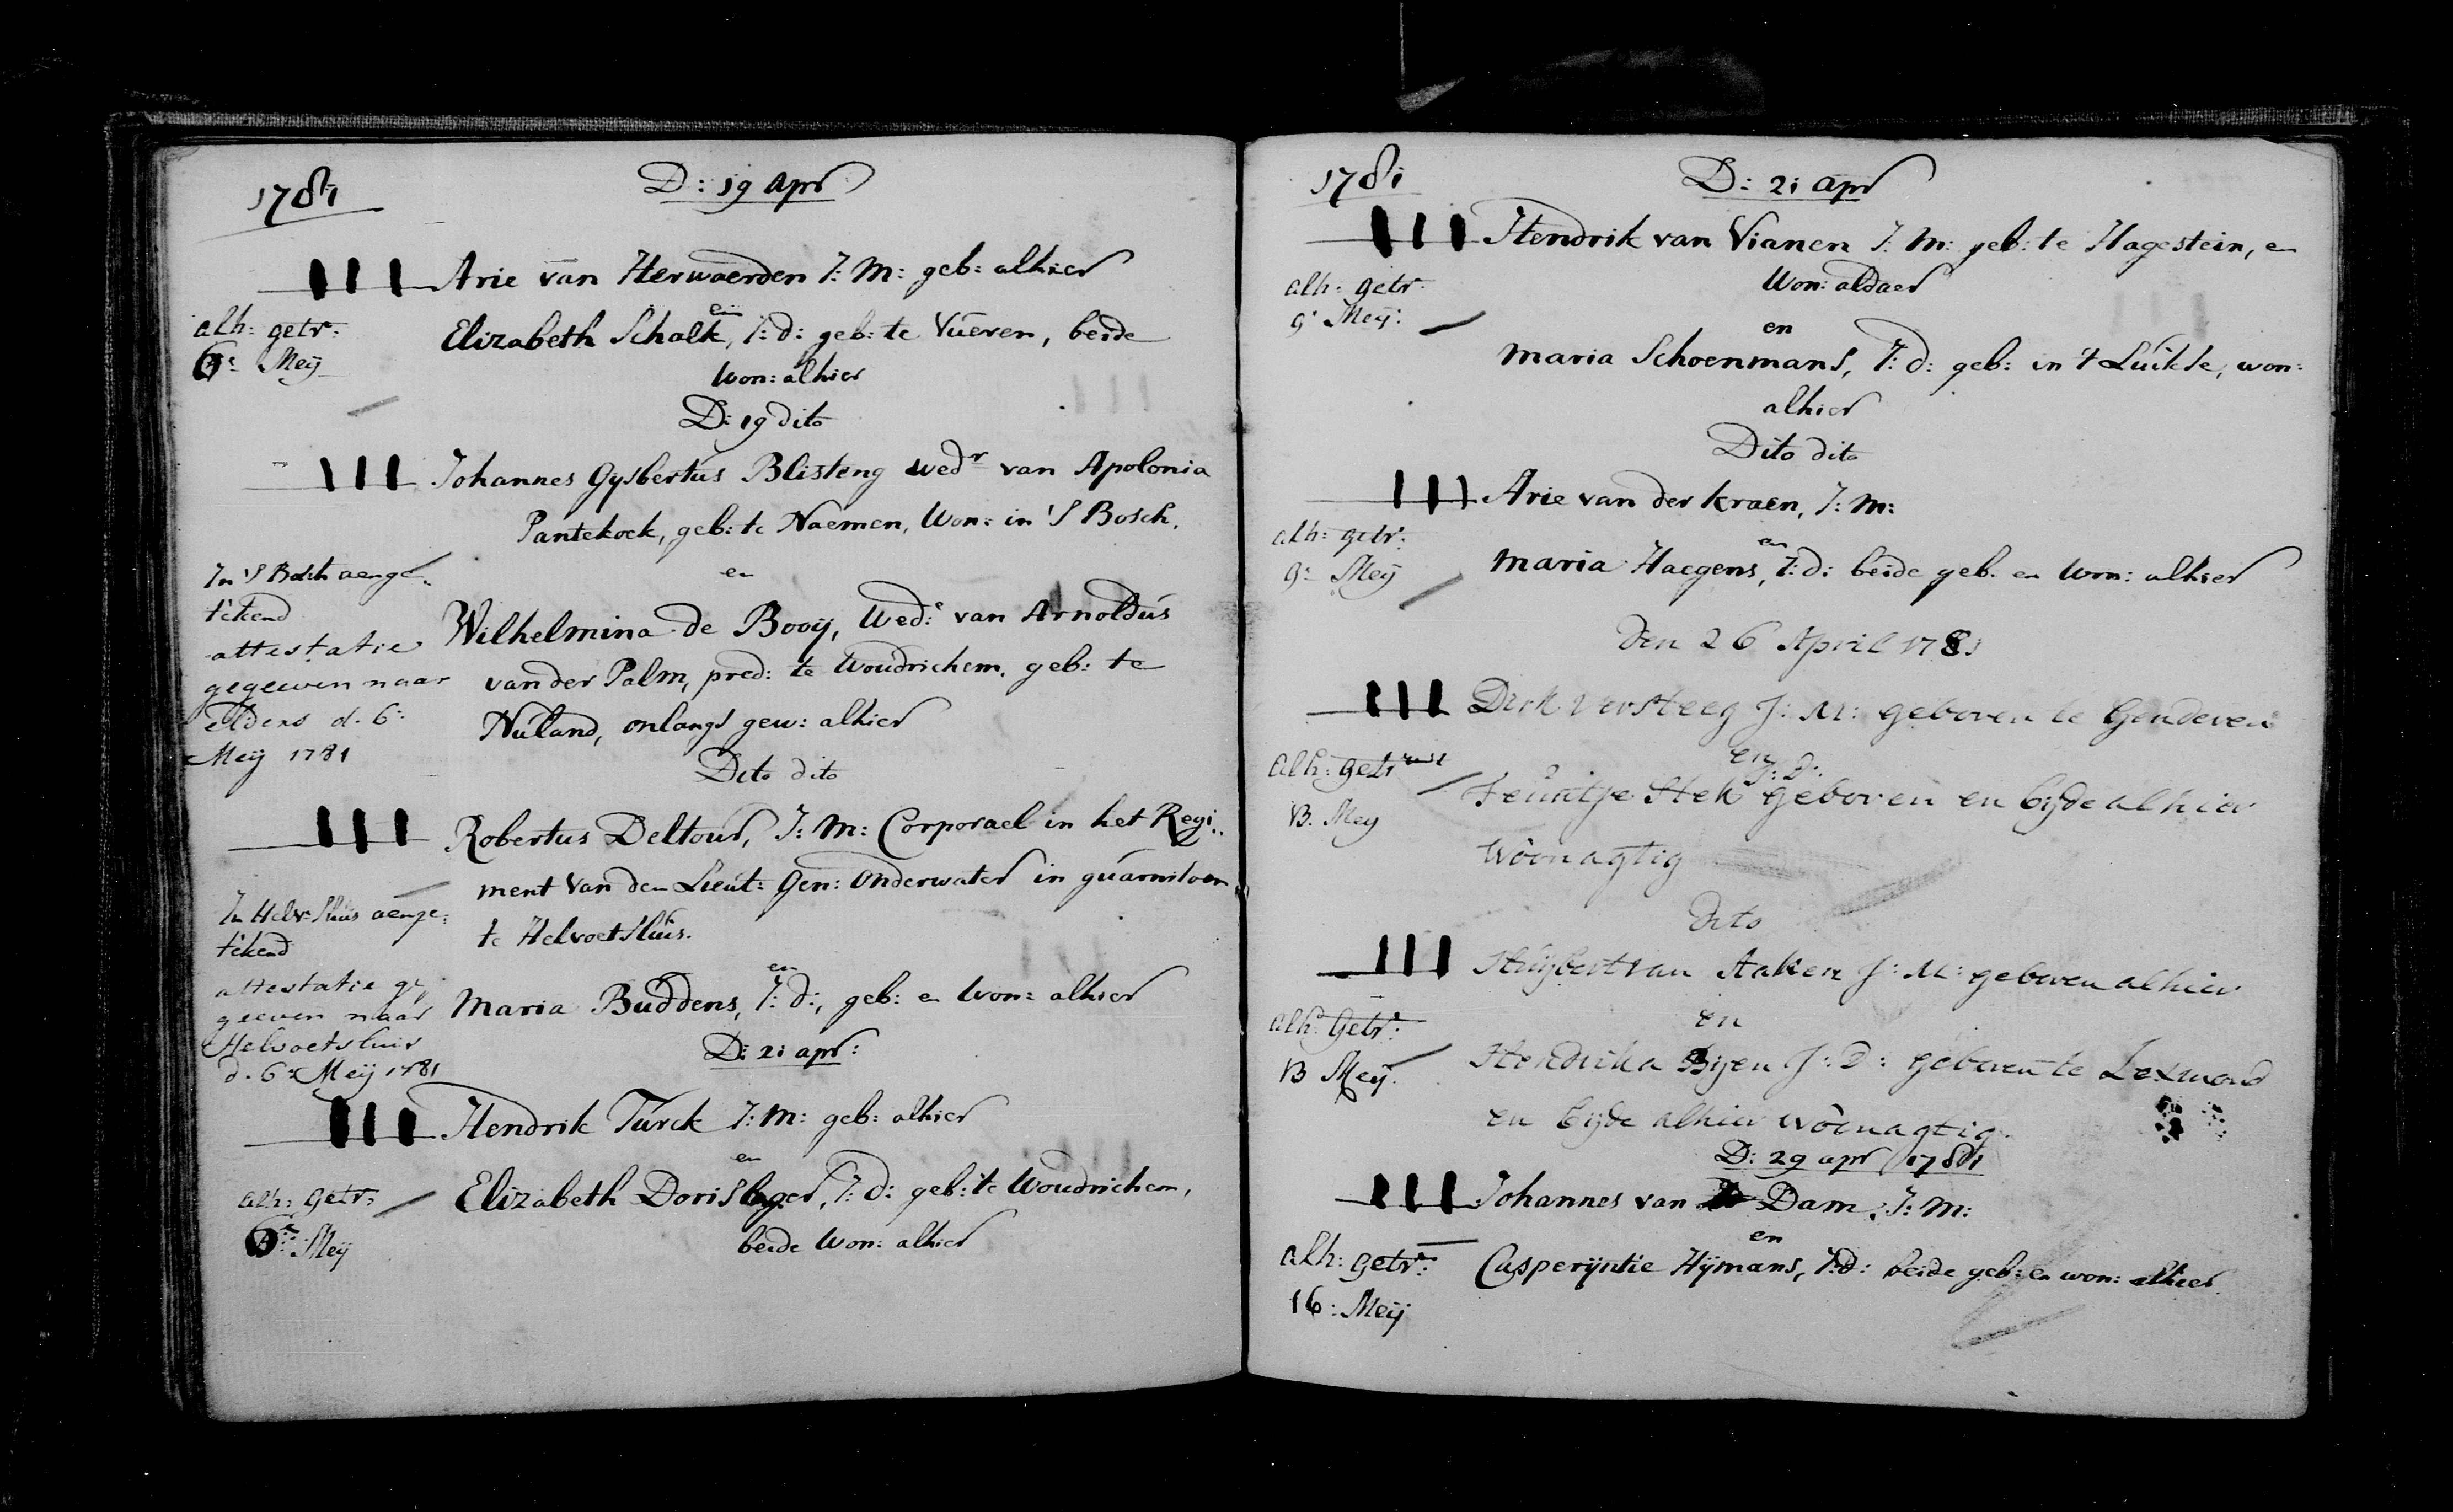 1781
D: 19 Apr
Arie van Herwaerden J: M: geb: alhier
en
alh: getr:
6e: Meij
Elizabeth Schalk, J: d: geb: te Vueren, beide
won: alhier
D: 19 dito
Johannes Gysbertus Blisteng wedr van Apolonia
Pantekoek, geb: te Naemen, Won: in 'S Bosch.
en
In 'S Bosch aenge:
tékend
attestatie
gegeeven naar
elders d. 6:
Meij 1781
Wilhelmina de Booij, Wed:e van Arnoldus
van der Palm, pred: te Woudrichem. geb: te
Nuland, onlangs gew: alhier
Dito dito
Robertus Deltour, J: M: Corporael in het Regi:
ment van den Lieut: Gen: Onderwater in guarnisoen
te Helvoetsluis.
en
In Helv: Sluis aenge:
tékend
attestatie ge
geeven naar
Helvoetsluis
d. 6: Meij 1781
Maria Buddens, J: d:, geb: en Won: alhier
D: 21 apr:
Hendrik Turck J: M: geb: alhier
en
alh: getr:
6e: Meij
Elizabeth Dorislager, J: d: geb: te Woudrichem,
beide Won: alhier
1781
D: 21 apr
Hendrik van Vianen J: M: geb: te Hagestein, en
Won: aldaer
alh: getr:
9: Meij:
en
Maria Schoenmans, J: d: geb: in 't Luikse, won:
alhier
Dito dito
Arie van der Kraen, J: M:
en
alh: getr:
9: Meij
Maria Haegens, J: d: beide geb. en Won: alhier
Den 26 April 1781
Dirk Versteeg J: M: geboren te Genderen
en
J: D:
alh: getr
13. Meij
Teuntje Stek geboren en beyde alhier
Woonagtig
dito
Huijbert van Aaken J: M: geboren alhier
en
alh: Getr:
13 Meij.
Hendrika Byen J: D: geboren te Lexmond
en beyde alhier woonagtig.
D: 29 apr 1781
Johannes van Dam, J: M:
en
alh: getr:
16: Meij
Casperijntie Hijmans, J: d: beide geb: en won: alhier.